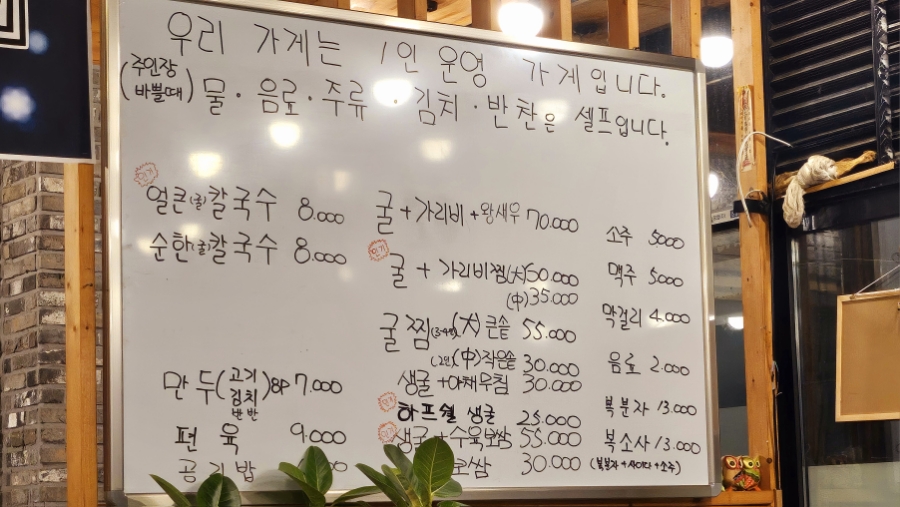 우리 가게는 1인 운영 가게입니다.
(주인장 바쁠때) 물·음료·주류·김치·반찬은 셀프입니다.
인기
얼큰(굴)칼국수 8.000
순한(굴)칼국수 8.000
만두(고기 김치 반반)8P 7.000
편육 9.000
공기밥
굴+가리비+왕새우 70.000
인기
굴+가리비찜(大)50.000
(中)35.000
굴찜(3~4인)(大)큰솥 55.000
(2인)(中)작은솥 30.000
생굴+야채무침 30.000
인기
하프쉘 생굴 25.000
인기
생굴+수육보쌈 55.000
보쌈 30.000
소주 5000
맥주 5000
막걸리 4.000
음료 2.000
복분자 13.000
복소사 13.000
(복분자+사이다+소주)